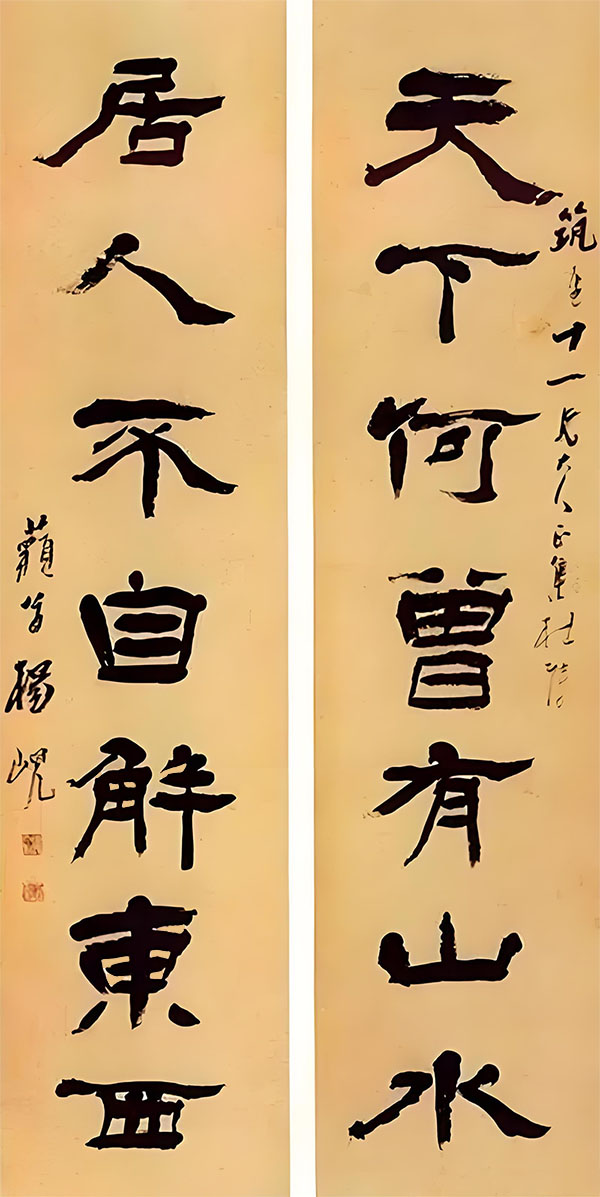 筑十一兄大人正集杜陸
天下何曾有山水
居人不自解東西
藐翁楊峴